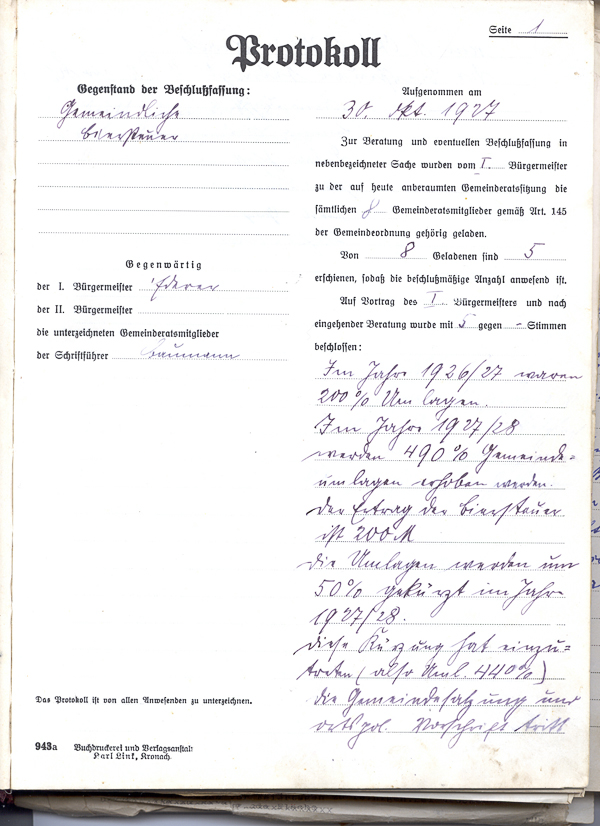 Seite 1
Protokoll
Gegenstand der Beschlußfassung:
Gemeindliche
Biersteuer
Gegenwärtig
der I. Bürgermeister Ederer
der II. Bürgermeister
die unterzeichneten Gemeinderatsmitglieder
der Schriftführer Baumann
Das Protokoll ist von allen Anwesenden zu unterzeichnen.
943a Buchdruckerei und Verlagsanstalt
Karl Link, Kronach.
Aufgenommen am
30. Okt. 1927
Zur Beratung und eventuellen Beschlußfassung in
nebenbezeichneter Sache wurden vom I. Bürgermeister
zu der auf heute anberaumten Gemeinderatssitzung die
sämtlichen 8 Gemeinderatsmitglieder gemäß Art. 145
der Gemeindeordnung gehörig geladen.
Von 8 Geladenen sind 5
erschienen, sodaß die beschlußmäßige Anzahl anwesend ist.
Auf Vortrag des I. Bürgermeisters und nach
eingehender Beratung wurde mit 5 gegen - Stimmen
beschlossen:
Im Jahre 1926/27 waren
200% Umlagen.
Im Jahre 1927/28
werden 490% Gemeinde=
umlagen erhoben werden.
Der Ertrag der Biersteuer
ist 200 M
Die Umlagen werden um
50% gekürzt im Jahre
1927/28.
Diese Kürzung hat einzu=
treten (also Uml. 440%)
Die Gemeindesatzung und
ortspol. Vorschrift tritt